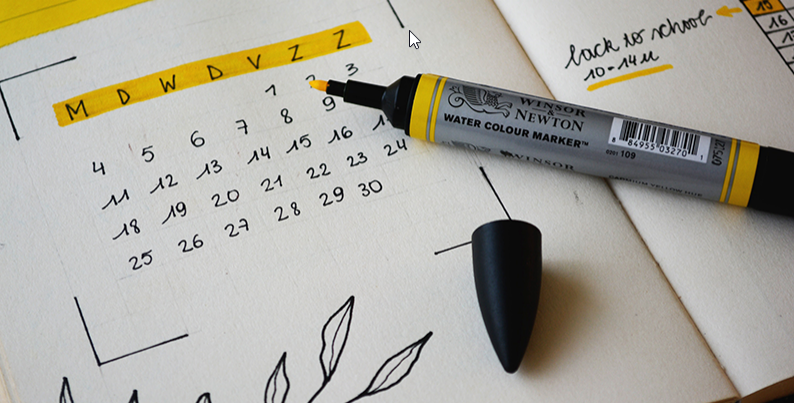 M D W D V Z Z
1 2 3
4 5 6 7 8 9
11 12 13 14 15 16
18 19 20 21 22 23 24
25 26 27 28 29 30
WINSOR
&
NEWTON
WATER COLOUR MARKER™
0201 109
8 84955 03270 1
WINSOR
back to school
10-14u
15
16